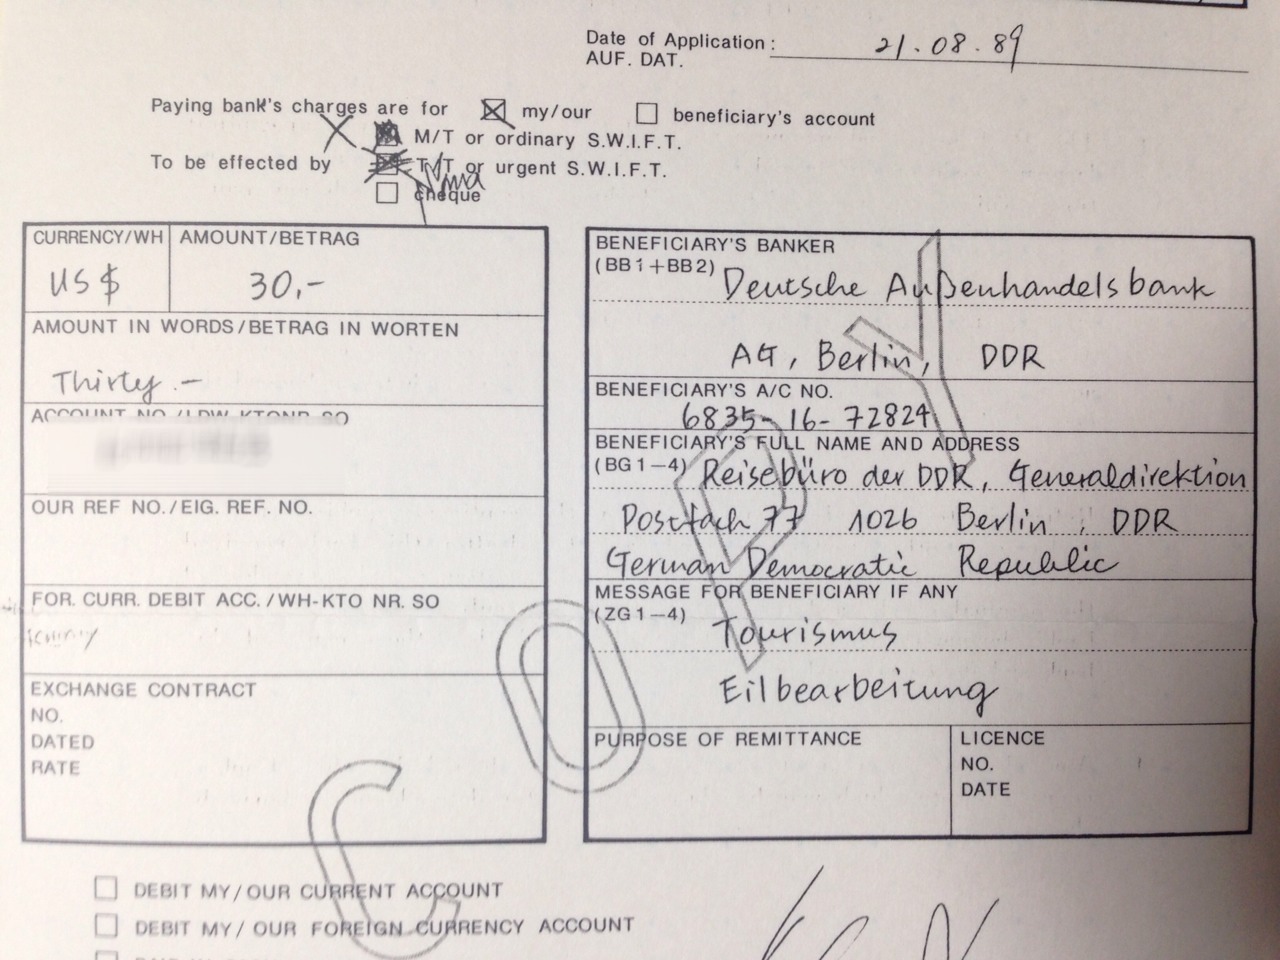 Date of Application: 21.08.89
AUF. DAT.
Paying bank's charges are for my/our beneficiary's account
M/T or ordinary S.W.I.F.T.
To be effected by T/T or urgent S.W.I.F.T.
cheque
CURRENCY/WH AMOUNT/BETRAG
US $ 30,-
AMOUNT IN WORDS/BETRAG IN WORTEN
Thirty.-
ACCOUNT NO./LDW-KTONR. SO
OUR REF NO./EIG. REF. NO.
FOR. CURR. DEBIT ACC./WH-KTO NR. SO
EXCHANGE CONTRACT
NO.
DATED
RATE
BENEFICIARY'S BANKER
(BB1+BB2) Deutsche Außenhandelsbank
AG, Berlin, DDR
BENEFICIARY'S A/C NO.
6835-16-72824
BENEFICIARY'S FULL NAME AND ADDRESS
(BG1-4) Reisebüro der DDR, Generaldirektion
Postfach 77 1026 Berlin, DDR
German Democratic Republic
MESSAGE FOR BENEFICIARY IF ANY
(ZG1-4) Tourismus
Eilbearbeitung
PURPOSE OF REMITTANCE
LICENCE
NO.
DATE
COPY
DEBIT MY/OUR CURRENT ACCOUNT
DEBIT MY/OUR FOREIGN CURRENCY ACCOUNT